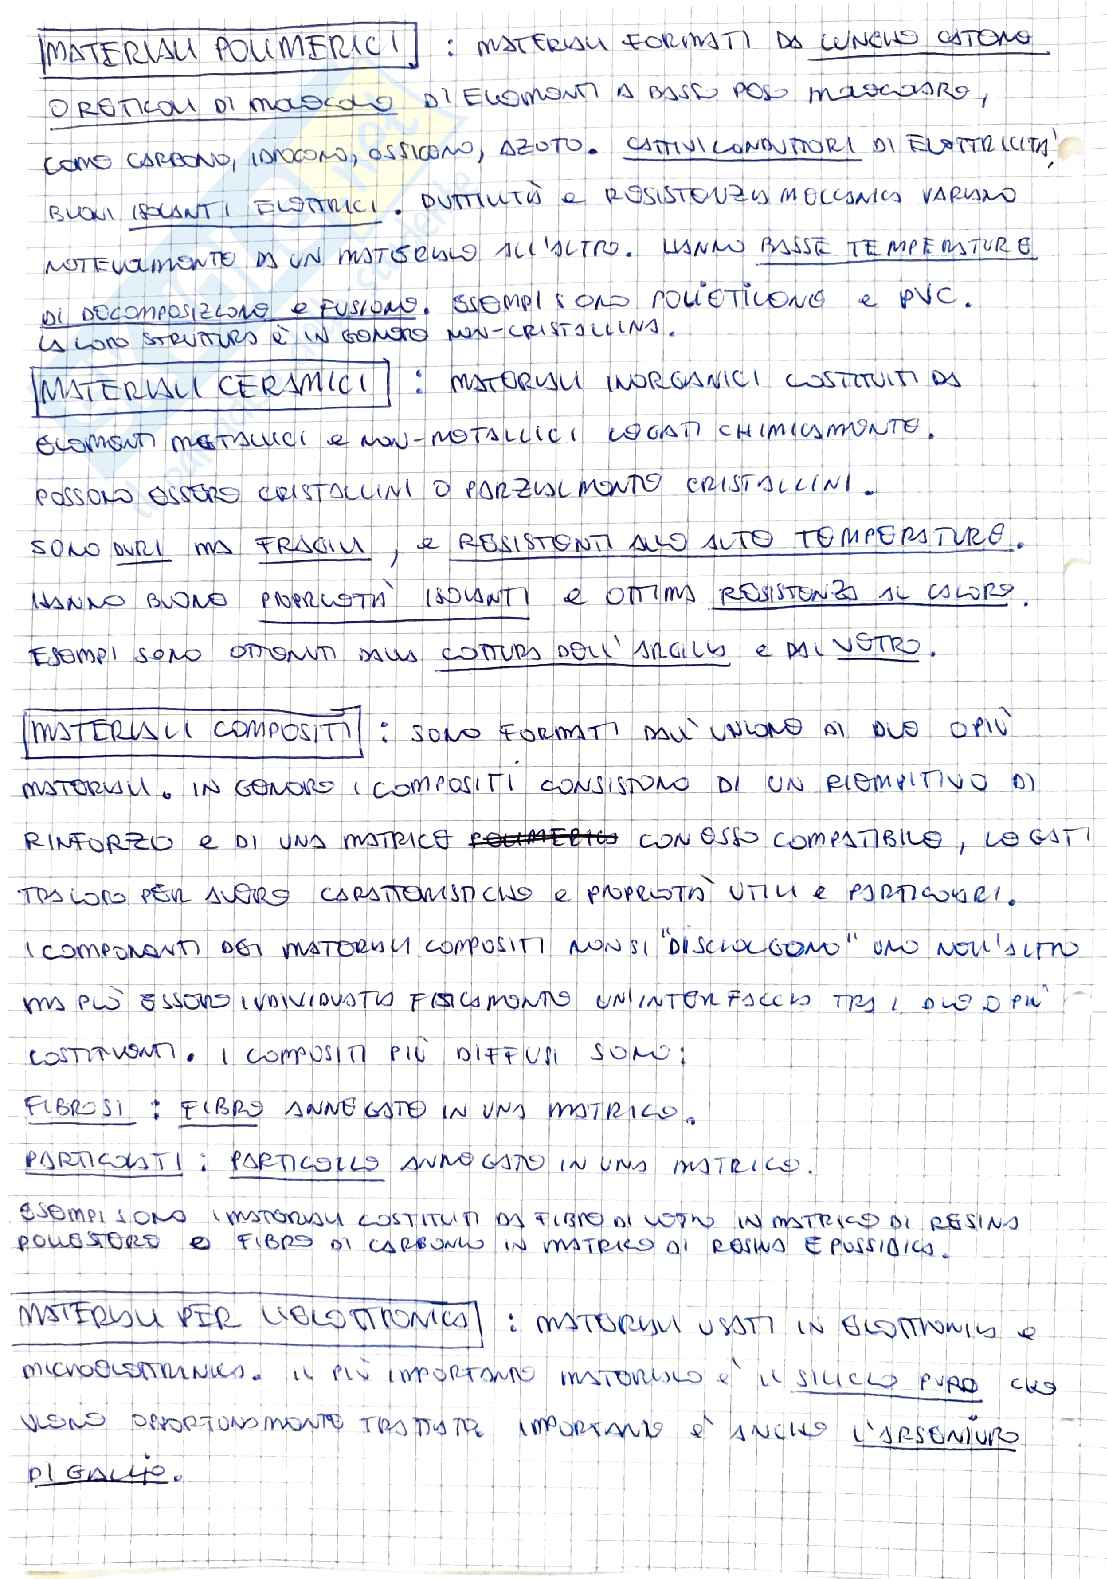 MATERIALI POLIMERICI : MATERIALI FORMATI DA LUNGHE CATENE
O RETICOLI DI MOLECOLE DI ELEMENTI A BASSO PESO MOLECOLARE,
COME CARBONIO, IDROGENO, OSSIGENO, AZOTO. CATTIVI CONDUTTORI DI ELETTRICITÀ,
BUONI ISOLANTI ELETTRICI. DUTTILITÀ E RESISTENZA MECCANICA VARIANO
NOTEVOLMENTE DA UN MATERIALE ALL'ALTRO. HANNO BASSE TEMPERATURE
DI DECOMPOSIZIONE E FUSIONE. ESEMPI SONO POLIETILENE E PVC.
LA LORO STRUTTURA È IN GENERE NON-CRISTALLINA.
MATERIALI CERAMICI : MATERIALI INORGANICI COSTITUITI DA
ELEMENTI METALLICI E NON-METALLICI LEGATI CHIMICAMENTE.
POSSONO ESSERE CRISTALLINI O PARZIALMENTE CRISTALLINI.
SONO DURI MA FRAGILI, E RESISTENTI ALLE ALTE TEMPERATURE.
HANNO BUONE PROPRIETÀ ISOLANTI E OTTIMA RESISTENZA AL CALORE.
ESEMPI SONO OTTENUTI DALLA COTTURA DELL'ARGILLA E DAL VETRO.
MATERIALI COMPOSITI : SONO FORMATI DALL'UNIONE DI DUE O PIÙ
MATERIALI. IN GENERE I COMPOSITI CONSISTONO DI UN RIEMPITIVO DI
RINFORZO E DI UNA MATRICE POLIMERICA CON ESSO COMPATIBILE, LEGATI
TRA LORO PER AVERE CARATTERISTICHE E PROPRIETÀ UTILI E PARTICOLARI.
I COMPONENTI DEI MATERIALI COMPOSITI NON SI "DISCIOLGONO" UNO NELL'ALTRO
MA PUÒ ESSERE INDIVIDUATA FISICAMENTE UN'INTERFACCIA TRA I DUE O PIÙ
COSTITUENTI. I COMPOSITI PIÙ DIFFUSI SONO:
FIBROSI : FIBRE ANNEGATE IN UNA MATRICE.
PARTICOLATI : PARTICELLE ANNEGATE IN UNA MATRICE.
ESEMPI SONO I MATERIALI COSTITUITI DA FIBRE DI VETRO IN MATRICE DI RESINA
POLIESTERE E FIBRE DI CARBONIO IN MATRICE DI RESINA EPOSSIDICA.
MATERIALI PER L'ELETTRONICA : MATERIALI USATI IN ELETTRONICA E
MICROELETTRONICA. IL PIÙ IMPORTANTE MATERIALE È IL SILICIO PURO CHE
VIENE OPPORTUNAMENTE TRATTATO. IMPORTANTE È ANCHE L'ARSENIURO
DI GALLIO.